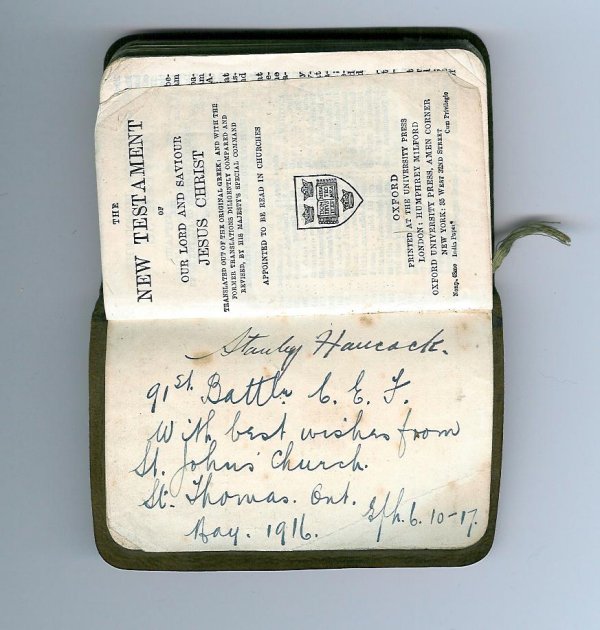 THE
NEW TESTAMENT
OF
OUR LORD AND SAVIOUR
JESUS CHRIST
TRANSLATED OUT OF THE ORIGINAL GREEK: AND WITH THE
FORMER TRANSLATIONS DILIGENTLY COMPARED AND
REVISED, BY HIS MAJESTY'S SPECIAL COMMAND
APPOINTED TO BE READ IN CHURCHES
OXFORD
PRINTED AT THE UNIVERSITY PRESS
LONDON: HUMPHREY MILFORD
OXFORD UNIVERSITY PRESS, AMEN CORNER
NEW YORK: 35 WEST 32ND STREET
Nonp. 48mo India Paper Cum Privilegio
Stanley Hancock.
91st. Battln C. E. F.
With best wishes from
St. Johns Church.
St. Thomas. Ont.
May. 1916. Eph. 6. 10-17.